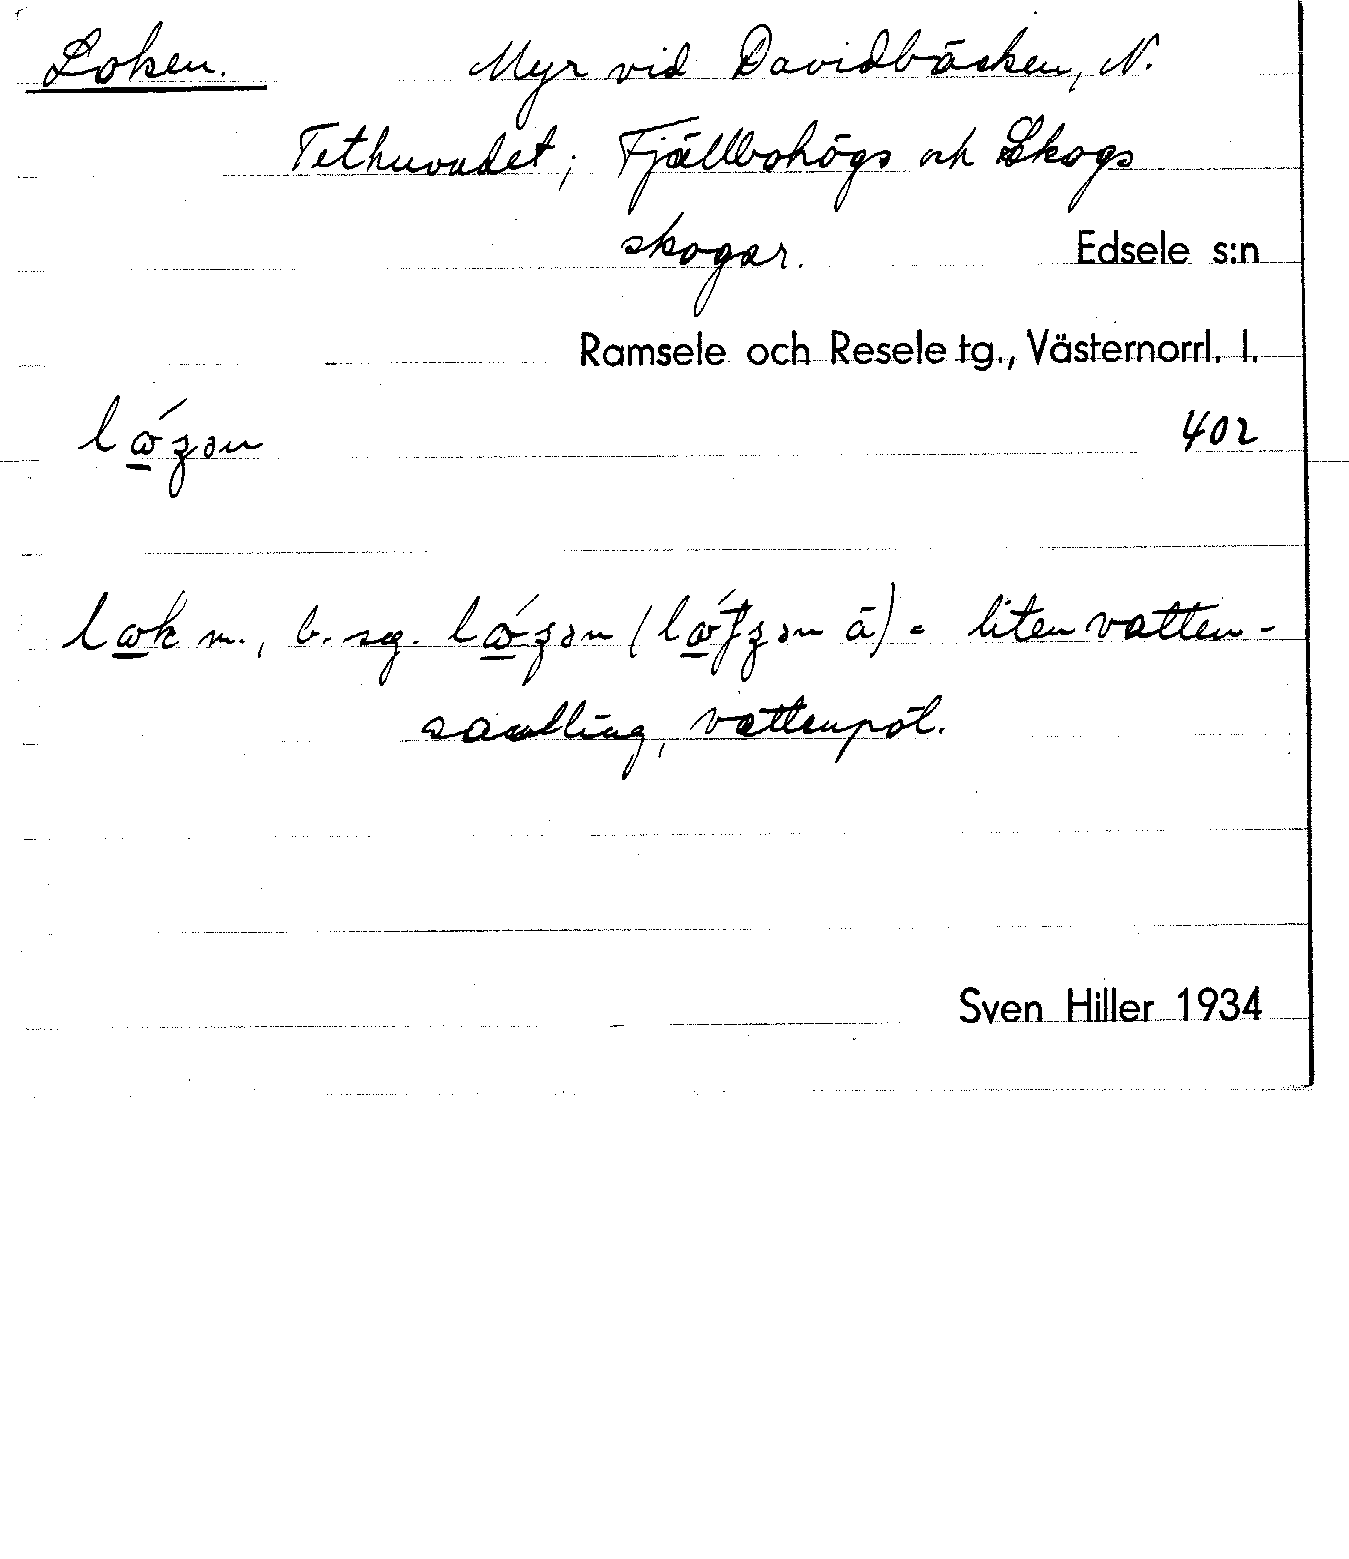 Loken. Myr vid Davidbäcken, N.
Tethuvudet; Fjällbohögs och Skogs
skogar. Edsele s:n
Ramsele och Resele tg., Västernorrl. l.
402
m., b. sg. liten vatten-
samling, vattenpöl.
Sven Hiller 1934